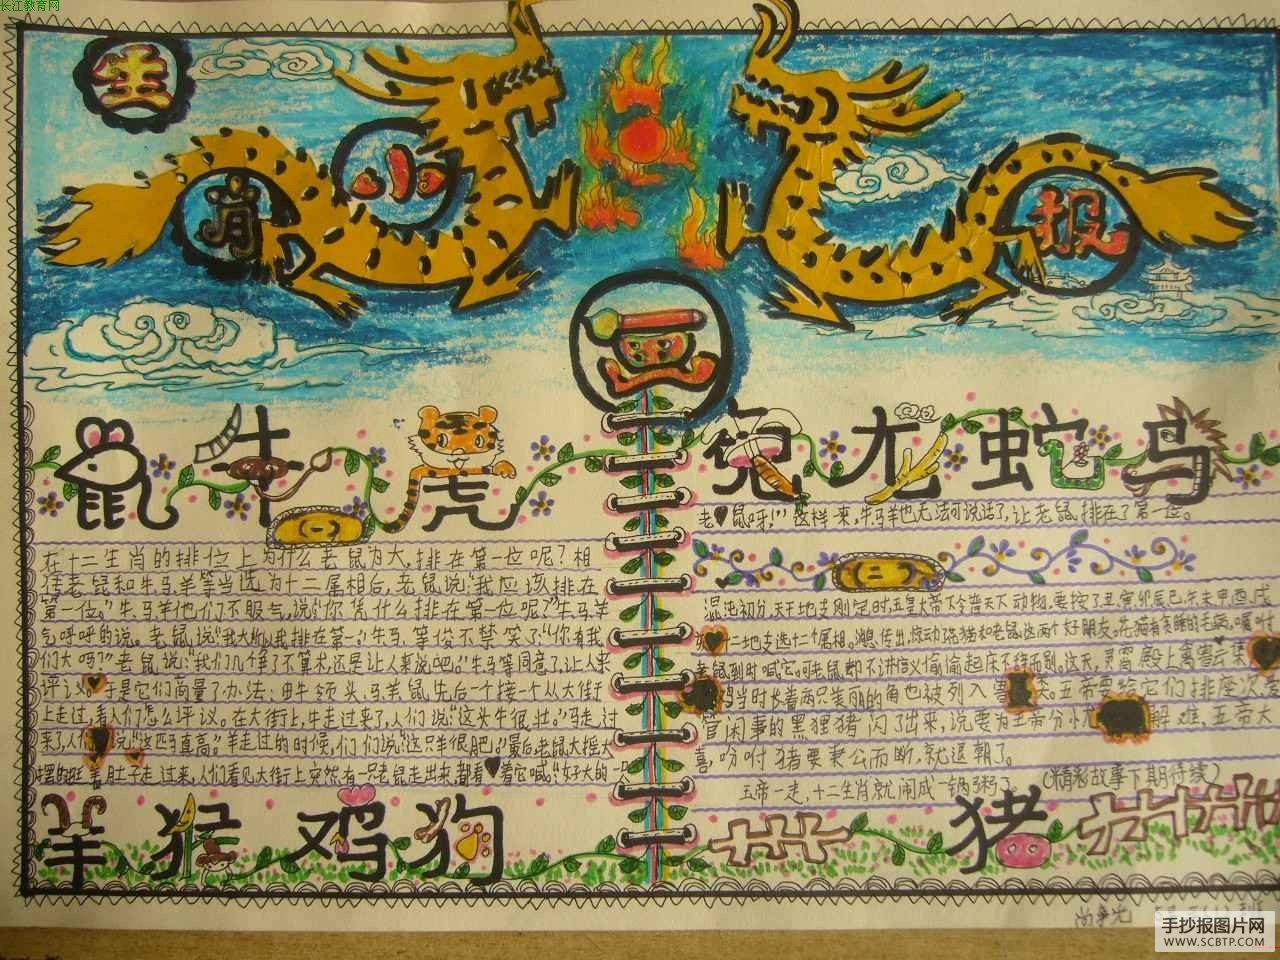 长江教育网
生
肖
小
报
鼠 牛 虎
兔 龙 蛇 马
在十二生肖的排位上为什么老鼠为大,排在第一位呢?相
老鼠和牛马羊等当选为十二属相后,老鼠说:"我应该排在
第一位。"牛、马羊他们不服气,说:"你凭什么排在第一位呢?"牛马羊
气呼呼的说。老鼠说"我大所以我排在第一"牛马,等俊不禁笑了"你有我
们大吗?"老鼠说:"我们几个争了不算术,还是让人来说吧。"牛马等同意了,让人来
评议。于是它们商量了办法:由牛领头,马羊鼠先后一个接一个从大街
上走过,看人们怎么评议。在大街上,牛走过来了,人们说"这头牛很壮。"马走过
来了,人们说"这匹马真高。"羊走过的时候,们们说:"这只羊很肥。"最后,老鼠大摇大
摆的挺着肚子走过来,人们看见大街上突然有一只老鼠走出来,都看着它喊:"好大的一
老鼠呀!"这样一来,牛马羊也无法可说话了,让老鼠排在了第一位。
混沌初分,天干地支刚定时,玉皇大帝下令普天下动物,要按子丑、寅、卯辰巳、午未申酉、戌
十二地支选十二个属相。消息传出,惊动说猫和老鼠这两个好朋友。先猫有贪睡的毛病,嘱咐
老鼠到时喊它。可老鼠却不讲信义偷偷起床不辞而别。这天,灵霄殿上禽兽云集
鸡当时长着两只美丽的角也被列入兽类。玉帝要给它们排座次,
管闲事的黑狸猪闪了出来,说要为玉帝分忧解难,玉帝大
喜,吩咐猪要秉公而断,就退朝了。
玉帝一走,十二生肖就闹成一锅粥了。
(精彩故事下期待续)
羊 猴 鸡 狗
猪
手抄报图片网
WWW.SCBTP.COM